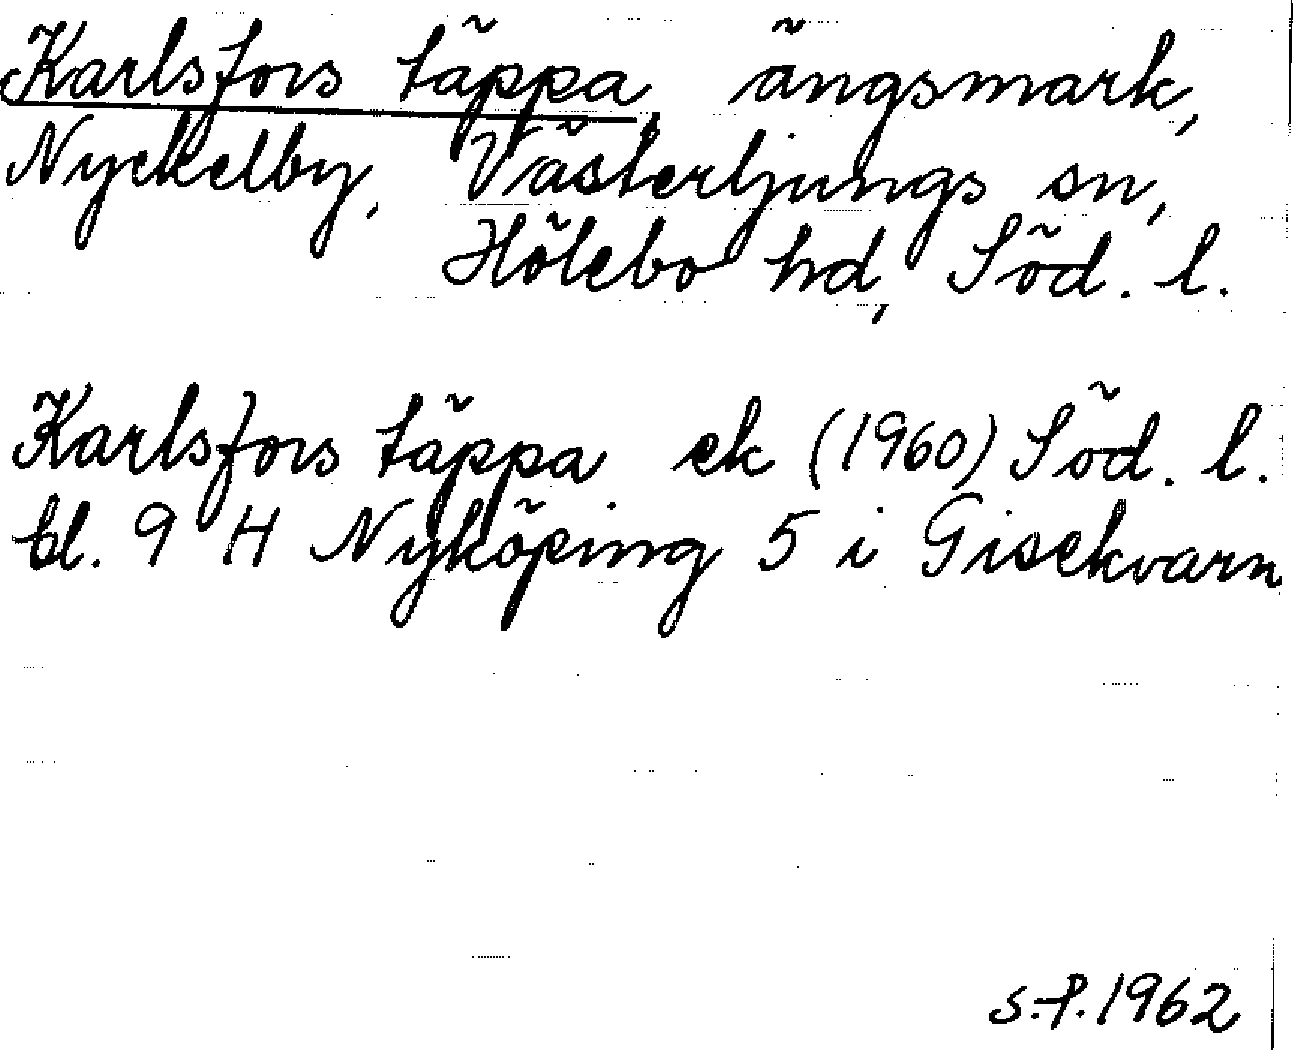 Karlsfors täppa, ängsmark,
Nyckelby, Västerljungs sn,
Hölebo hd, Söd. l.
Karlsfors täppa ek (1960) Söd. l.
bl. 9 H Nyköping 5 i Gisekvarn
S.-P. 1962